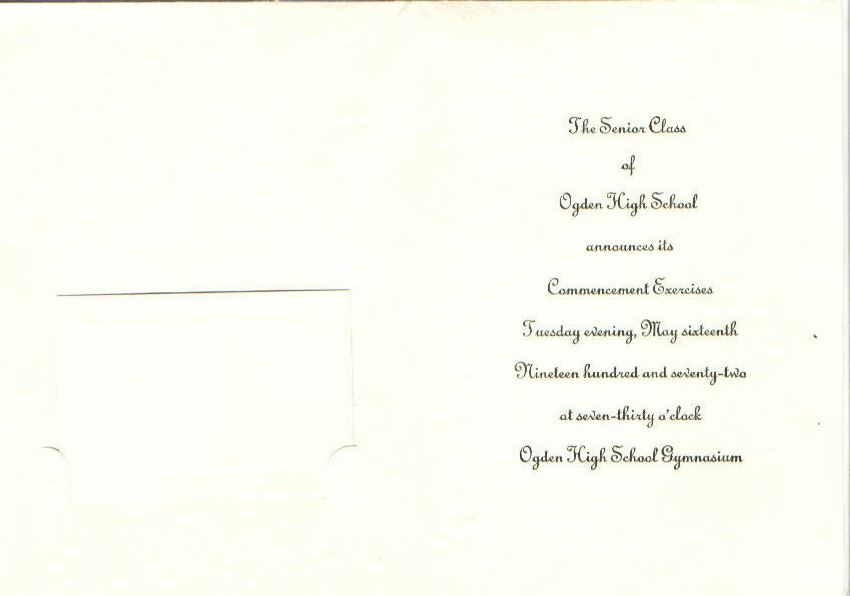 The Senior Class
of
Ogden High School
announces its
Commencement Exercises
Tuesday evening, May sixteenth
Nineteen hundred and seventy-two
at seven-thirty o'clock
Ogden High School Gymnasium